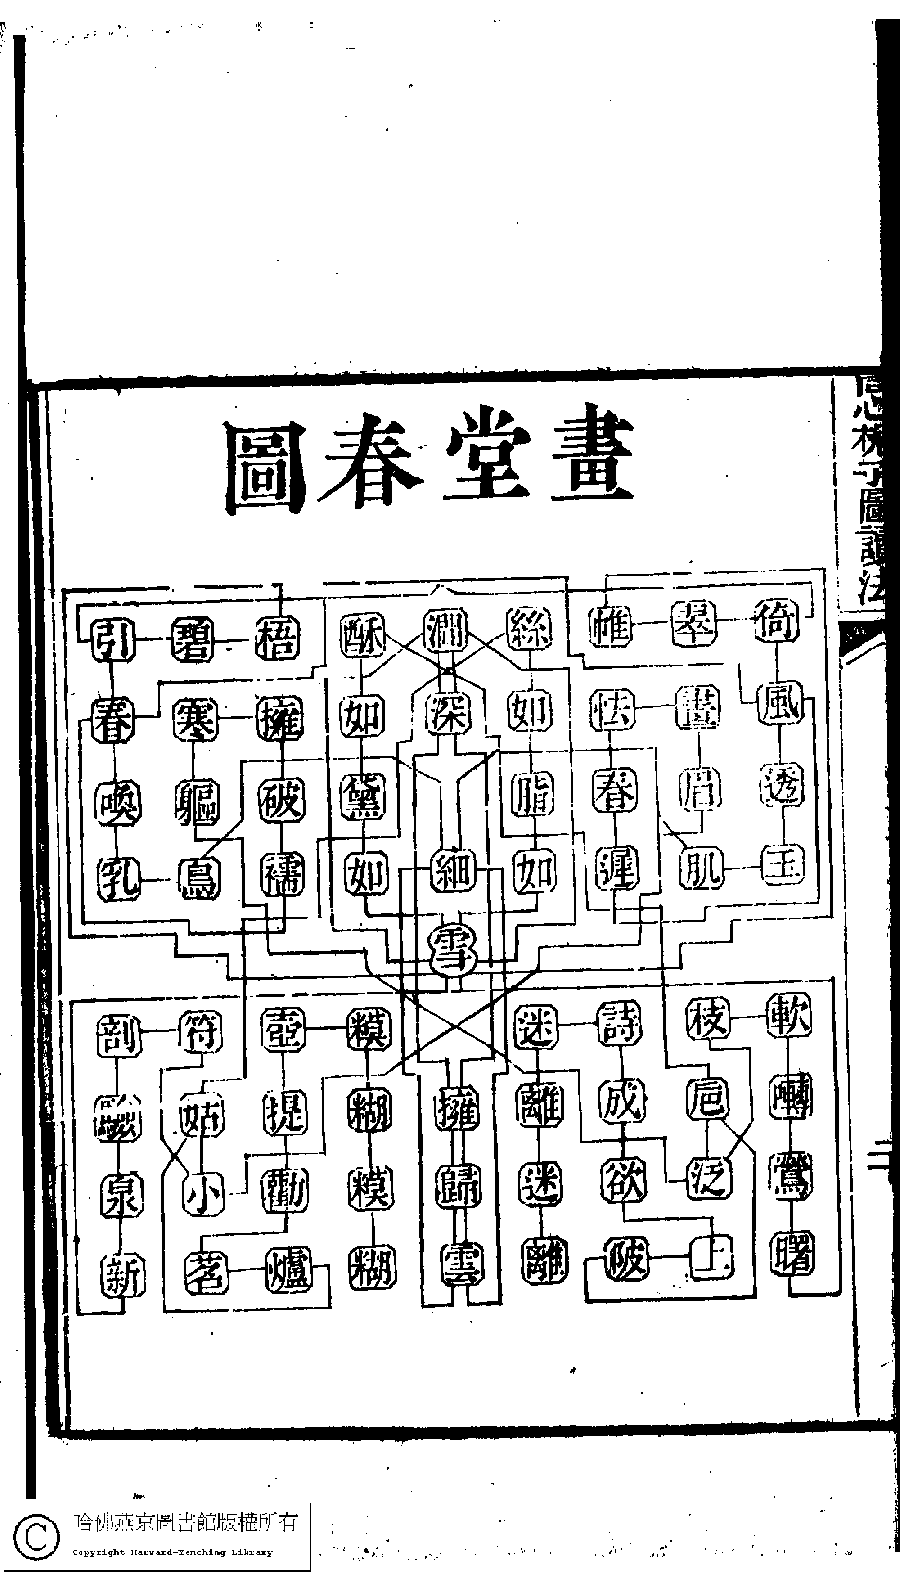 畫堂春圖
倚翠帷絲澗酥梧碧引
風畫怯如深如擁寒春
透眉春脂黛破軀喚
玉肌遲如細如襦鳥乳
雪
軟枝詩迷糢壺符剖
囀巵成離擁糊提姑
鶯泛欲迷歸糢勸小泉
曙上陂離雲糊爐茗新
哈佛燕京圖書館版權所有
Copyright Harvard-Yenching Library